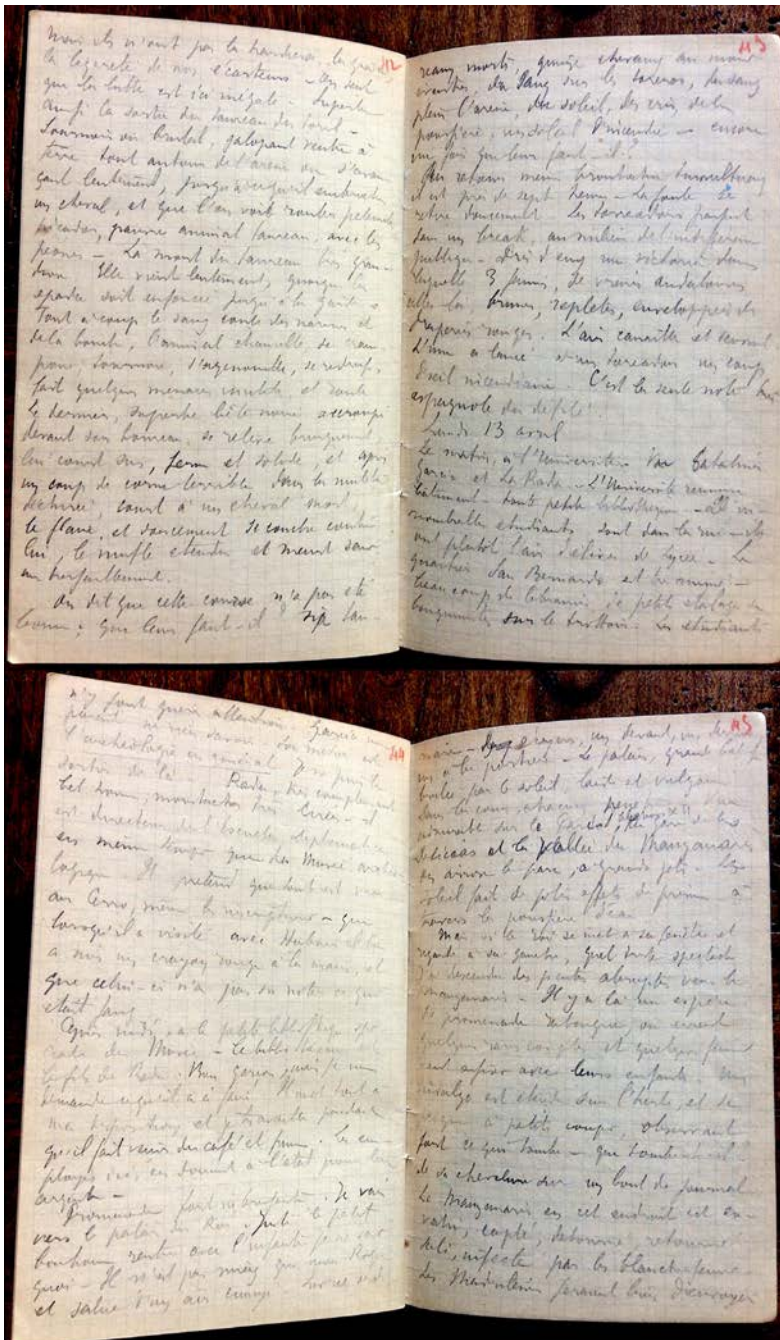 112
mais ils n'ont pas la hardiesse, la grâce,
la légèreté de nos écarteurs - On sent
que la lutte est inégale - Superbe
aussi la sortie du taureau du toril -
Sournois ou brutal, galopant ventre à
terre tout autour de l'arène ou s'avan
çant lentement, jusqu'à ce qu'il
un cheval, et que l'on voit rouler pêle mêle
picador, pauvre animal taureau, avec les
peones - La mort du taureau bien gran
diose. Elle vient lentement, quoique la
epada soit enfoncée jusqu'à la garde -
Tout à coup le sang coule des narines et
de la bouche, l'animal chancelle, se cram
ponne, tournoie, s'agenouille, se redresse,
fait quelques menaces et
Le dernier, superbe bête noire accroupi
devant son bourreau, se relève brusquement
lui court sus, ferme et solide, et après
un coup de corne terrible dans la muleta
déchirée, court à un cheval mort,
le flaire, et doucement se couche contre
lui, le mufle étendu et meurt sans
un tressaillement.
On dit que cette course n'a pas été
bonne; que leur faut-il? six tau-
113
reaux morts, quinze chevaux au moins
éventrés, du sang sur les toreros, du sang
plein l'arène, du soleil, des cris de la
poussière, un soleil d'incendie - encore
une fois que leur faut-il?
Au retour même tumultueux
il est près de sept heures - La foule se
retire doucement - Les toreadors partent
dans un break, au milieu de l'indifférence
publique - d'une victoria dans
laquelle 3 femmes, de vraies andalouses
celles-là, brunes, replètes, enveloppées de
draperies rouges. L'air canaille et
L'une a lancé à un toreador un coup
d'œil incendiaire. C'est la seule note bien
espagnole du défilé!
Lundi 13 avril
Le matin, à l'Université. Vu Catalina
Garcia et La Rada - L'Université
bâtiment - toute petite bibliothèque - d'in-
nombrables étudiants sont dans la rue - ils
ont plutôt l'air d'élèves de lycée - Le
quartier San Bernardo est très animé -
beaucoup de librairies à petit étalage
bouquinistes sur le trottoir. Les étudiants
114
n'y font guère attention. Garcia me
paraît ne rien savoir. Son métier est
l'archéologie en général
sortir de là. Rada, très complaisant
bel homme, moustaches très cirées - il
est directeur de l'Escuela diplomatica
en même temps que du Musée archéo
logique. Il prétend que tout est vrai
au Cerro, même les inscriptions - que
lorsqu'il a visité avec Hubner il lui
a mis un crayon rouge à la main, et
que celui-ci n'a pas su noter ce qui
était faux
Après midi, à la petite bibliothèque
du Musée - Le bibliothécaire est
le fils de Rada. Bon garçon, mais je me
demande ce qu'il a à faire. Il met tout à
ma disposition, et je travaille pendant
qu'il fait venir du café et fume. Les em-
ployés ici, en donnent à l'état pour leur
argent -
Promenade fort Je vais
vers le palais du Roi. Juste le petit
bonhomme rentre avec l'infante je ne sais
quoi - Il n'est pas mieux que mon Roger
et salue d'un air ennuyé -
115
écuyers, un devant, un derrière
un à la portière - Le palais, grand
brûlée par le soleil, laide et vulgaire
Dans la cour,
admirable sur le Pardo, la gare de las
Delicias et la vallée du Manzanares
on arrose le parc, à grands jets - Le
soleil fait de jolis effets de prisme à
travers la poussière d'eau.
Mais si le roi se met à sa fenêtre et
regarde à sa gauche, quel triste spectacle
J'ai descendu des pentes abruptes vers le
Manzanares - Il y a là un espèce
de promenade où errent
quelques et quelques femmes
vont avec leurs enfants. Un
hidalgo est étendu sur l'herbe, et se
à petits coups, observant
tout ce qui tombe - que tombe-t-il
de sa chevelure sur un bout de journal
Le Manzanares en cet endroit est en-
vahi, capté, détourné, retourné
sali, infecté par les blanchisseuses.
Les Madrilènes feraient bien d'envoyer